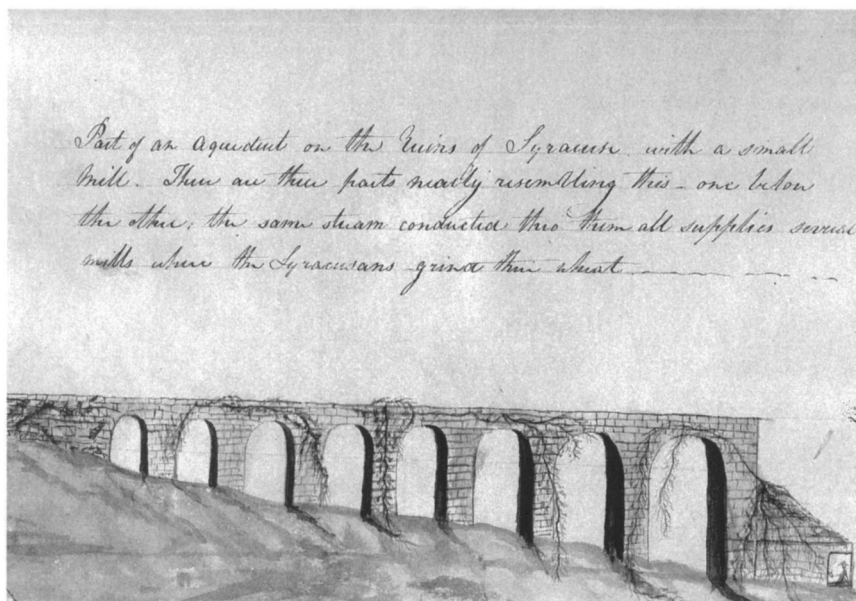 Part of an Aqueduct on the Ruins of Syracuse with a small
Mill. There are three parts nearly resembling this - one below
the other; the same stream conducted thro' them all supplies several
mills where the Syracusans grind their wheat